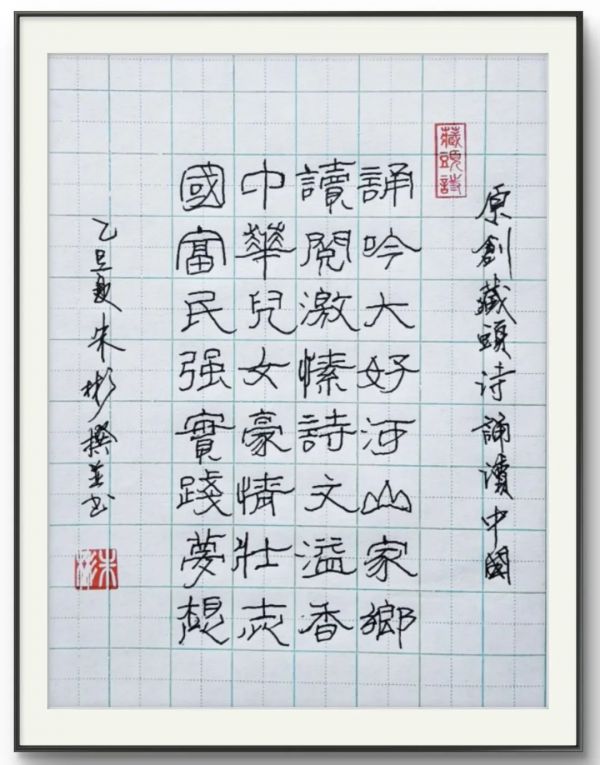 原創藏頭诗誦讀中國
藏頭詩
誦吟大好河山家鄉
讀閱激愫詩文溢香
中華兒女豪情壯志
國富民强實踐夢想
乙巳夏朱彬撰並书
朱彬